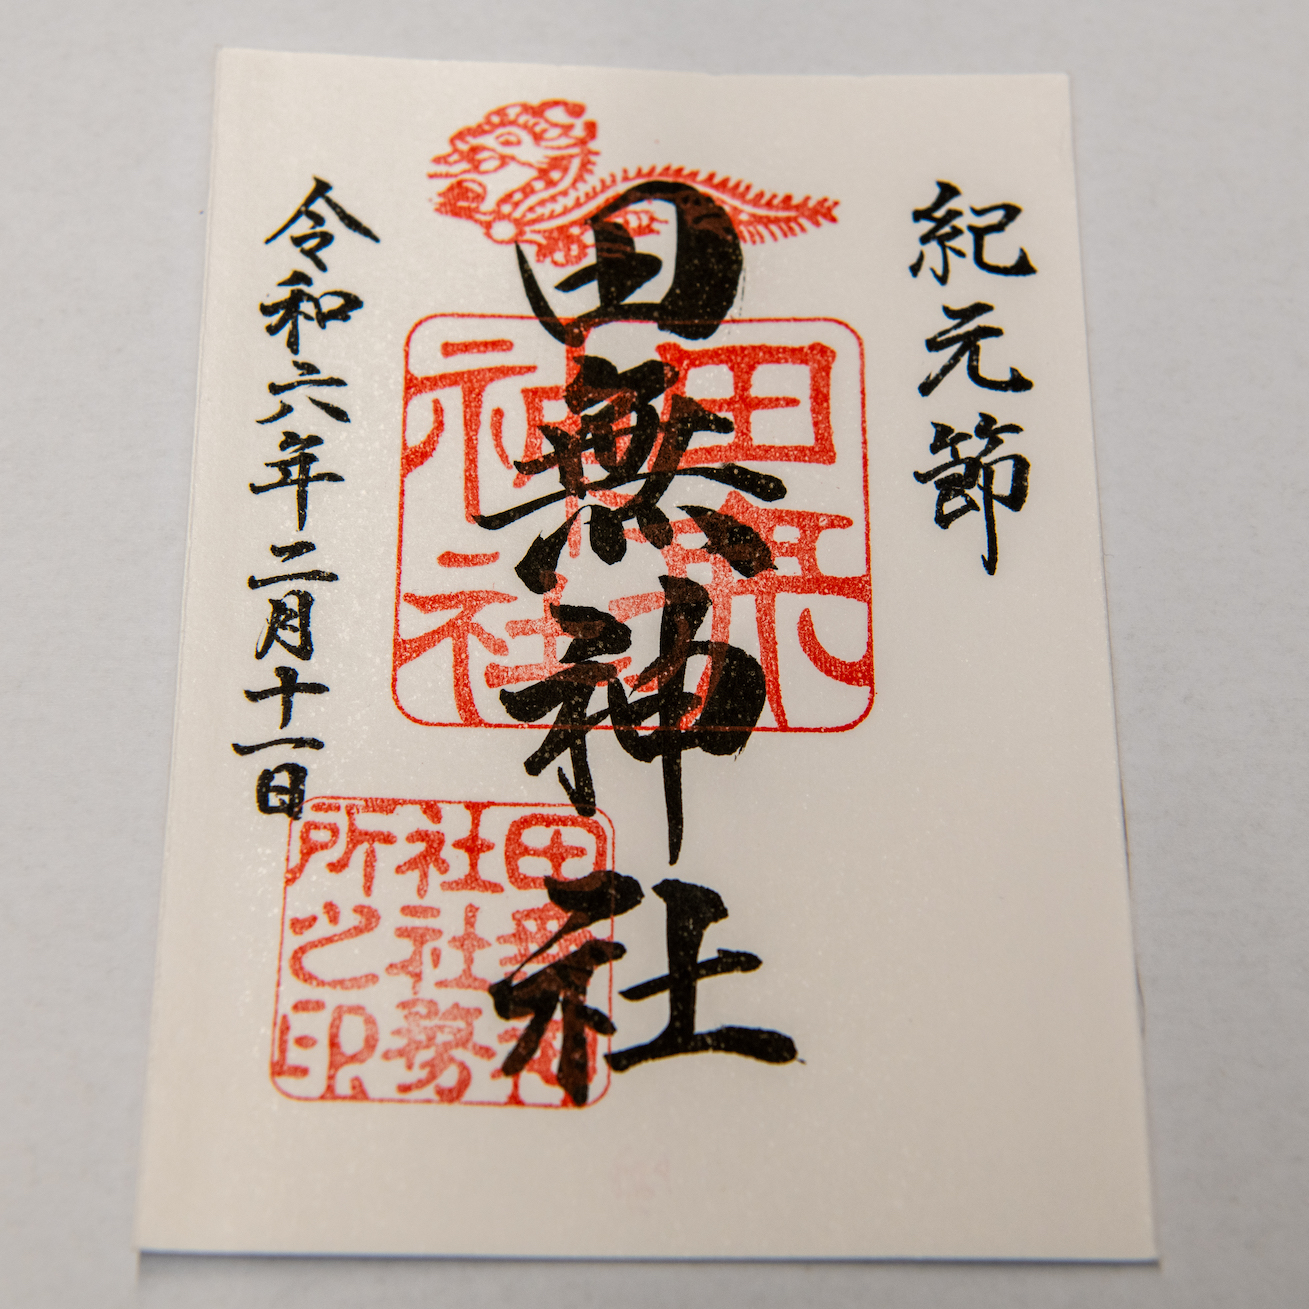 紀元節
田無神社
令和六年二月十一日
田無
神社
田無神
社社務
所之印